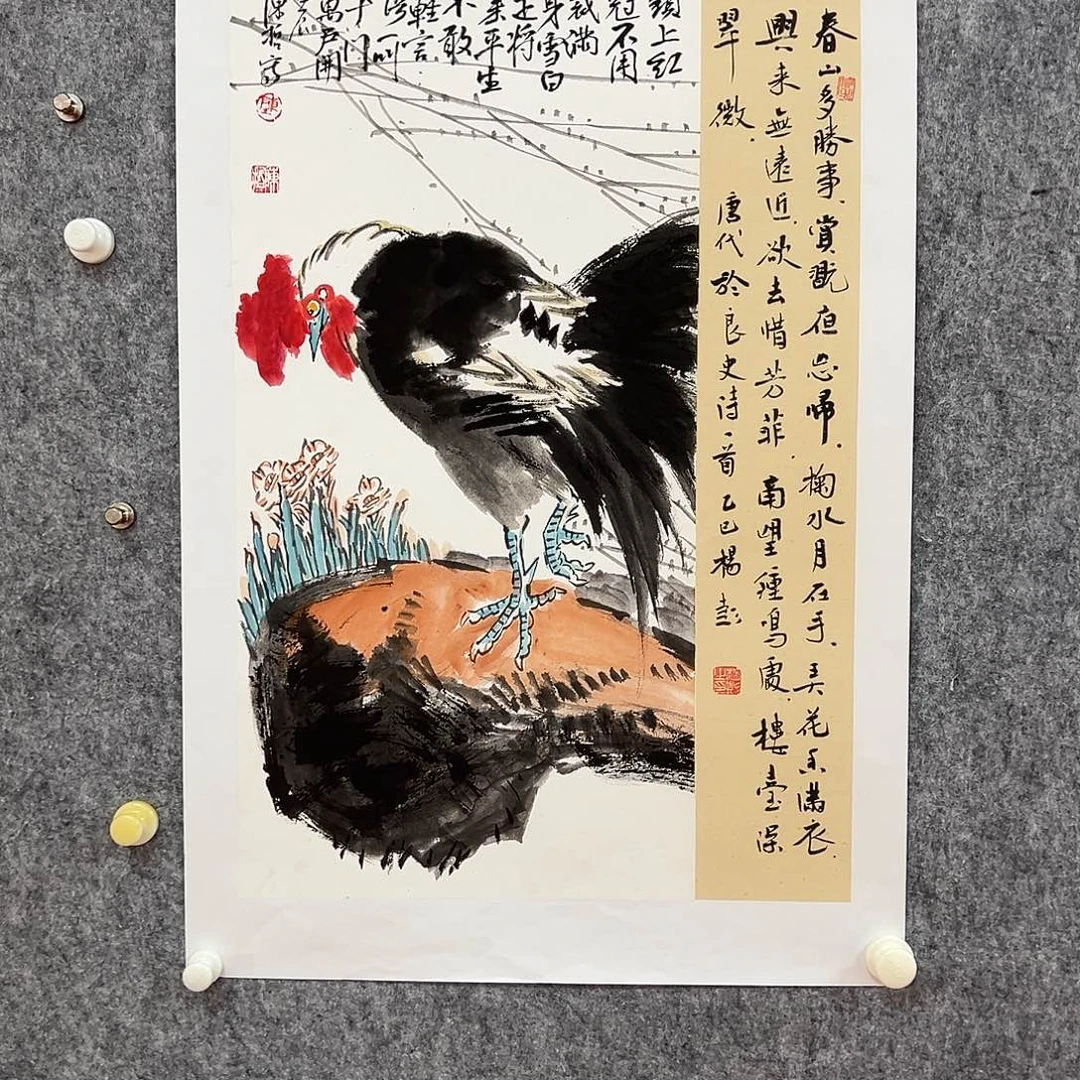 春山多勝事、賞翫夜忘歸．掬水月在手、弄花香滿衣．
興来無遠近、欲去惜芳菲．南望鐘鳴處、樓臺深
翠微．唐代於良史詩一首 乙巳楊彭
頭上红
冠不用
裁满
身雪白
走将
来平生
不敢
輕言
语一叫
千门
萬户開
寫